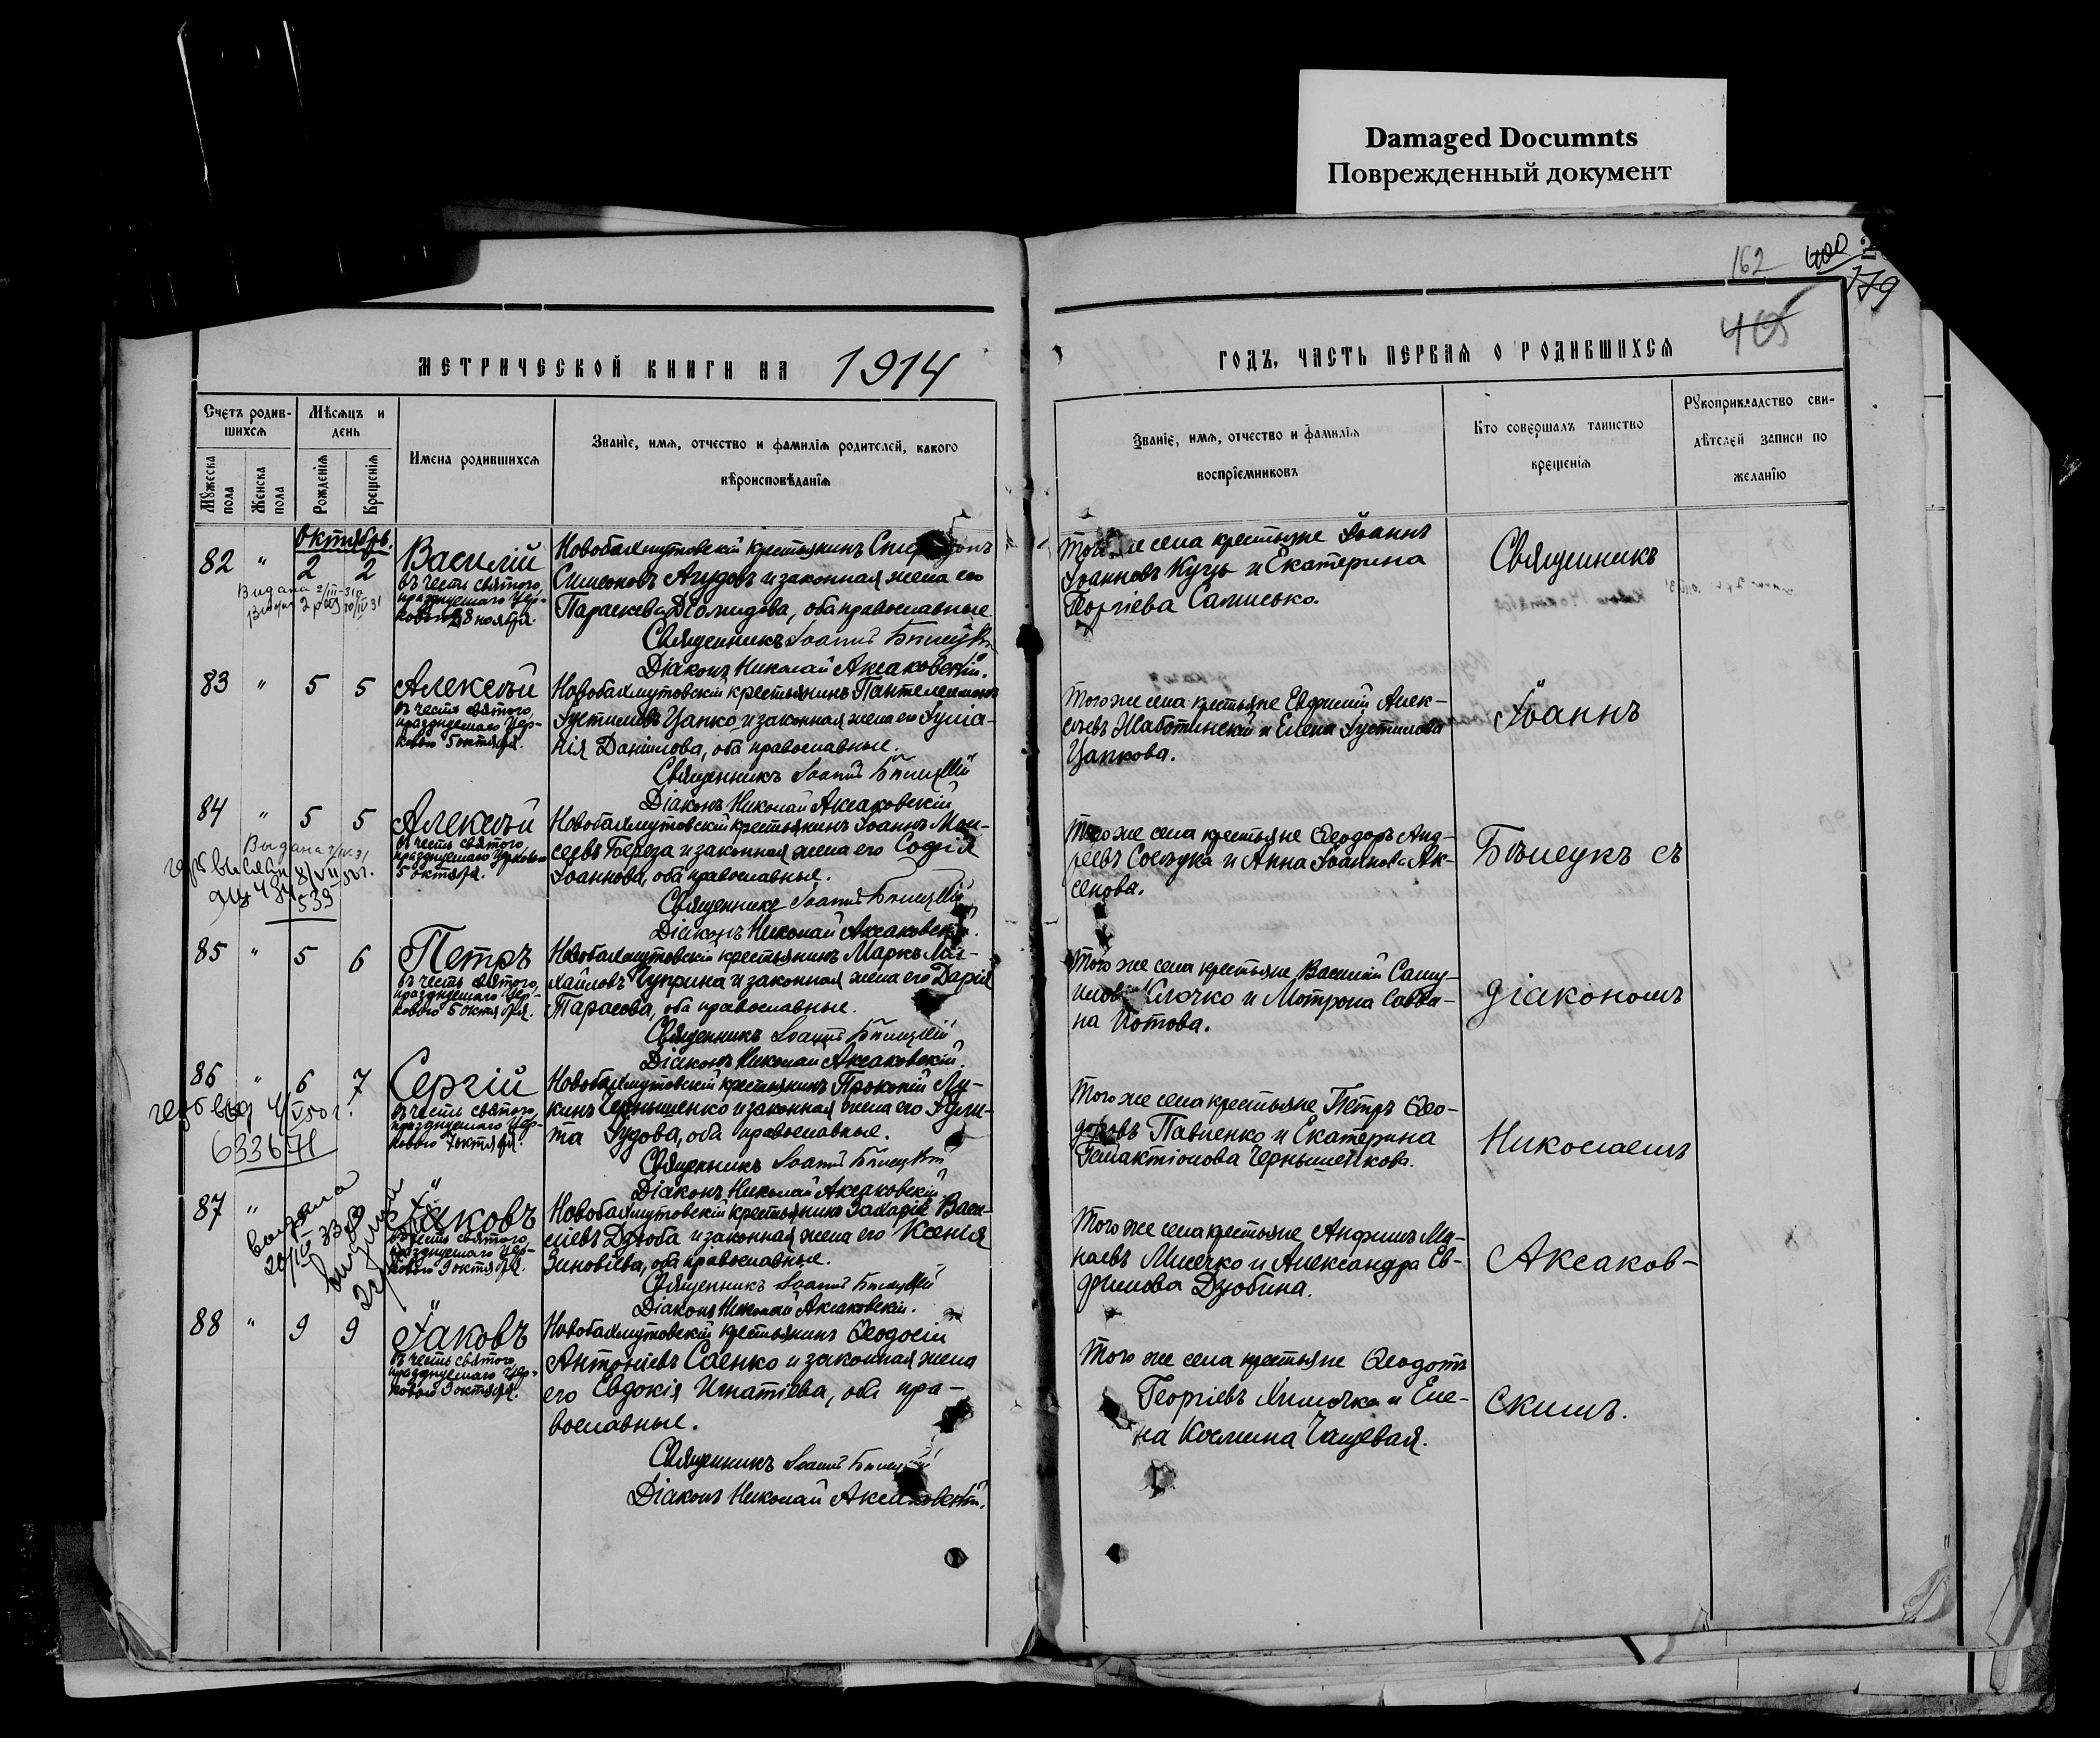 Damaged Documnts
Поврежденный документ
162
400
179
405
МЕТРИЧЕСКОЙ КНИГИ НА 1914
ГОДЪ, ЧАСТЬ ПЕРВАЯ О РОДИВШИХСЯ
Счетъ родив-
шихся
Мужеска пола
Женска пола
Мѣсяцъ и
день
Рожденія
Крещенія
Имена родившихся
Званіе, имя, отчество и фамилія родителей, какого
вѣроисповѣданія
Званіе, имя, отчество и фамилія
воспріемниковъ
Кто совершалъ таинство
крещенія
Рукоприкладство сви-
дѣтелей записи по
желанію
Октябрь.
82 " 2 2 Василій
въ честь святого,
празднуемаго Цер-
ковью 28 ноября.
Новобахмутовскій крестьянинъ
Симеоновъ и законная жена его
Параскева Діомидова, оба православные
Священникъ Іоаннъ
Діаконъ Николай Аксаковскій.
Того же села крестьяне Іоаннъ
Іоанновъ Куцъ и Екатерина
Георгіева
83 " 5 5 Алексѣй
въ честь святого,
празднуемаго Цер-
ковью 5 октября.
Новобахмутовскій крестьянинъ Пантелеимонъ
Іустиновъ Цапко и законная жена его Іуліа-
нія Даніилова, оба православные.
Священникъ Іоаннъ
Діаконъ Николай Аксаковскій
Того же села крестьяне Евфимій Алек-
сѣевъ Жаботинскій и Елена Іустинова
Цапкова.
84 " 5 5 Алексѣй
въ честь святого,
празднуемаго Церковью
5 октября.
Новобахмутовскій крестьянинъ Іоаннъ Мои-
сеевъ Береза и законная жена его Софія
Іоаннова, оба православные.
Священникъ Іоаннъ
Діаконъ Николай Аксаковскій.
Того же села крестьяне Ѳеодоръ Анд-
реевъ и Анна Іоаннова Ак-
сенова.
85 " 5 6 Петръ
въ честь святого,
празднуемаго Цер-
ковью 5 октября.
Новобахмутовскій крестьянинъ Маркъ Ми-
хайловъ Чуприна и законная жена его Дарія
Тарасова, оба православные.
Священникъ Іоаннъ
Діаконъ Николай Аксаковскій.
Того же села крестьяне Василій Саму-
иловъ Клочко и Мотрона Савви-
на Котова.
86 " 6 7 Сергій
въ честь святого,
празднуемаго Цер-
ковью 7 октября.
633671
Новобахмутовскій крестьянинъ Прокопій Лу-
кинъ Чернышенко и законная жена его Іули-
та Іудова, оба православные.
Священникъ Іоаннъ
Діаконъ Николай Аксаковскій
Того же села крестьяне Петръ Ѳео-
доровъ Павленко и Екатерина
Галактіонова Чернышенкова.
87 " Іаковъ
въ честь святого,
празднуемаго Цер-
ковью 9 октября.
Новобахмутовскій крестьянинъ Захарія Васи-
ліевъ Дзюба и законная жена его Ксенія
Зиновіева, оба православные.
Священникъ Іоаннъ
Діаконъ Николай Аксаковскій.
Того же села крестьяне Анфимъ Ми-
наевъ Мисечко и Александра Ев-
фимова Дзюбина.
88 " 9 9 Іаковъ
въ честь святого,
празднуемаго Цер-
ковью 9 октября.
Новобахмутовскій крестьянинъ Ѳеодосій
Антоніевъ Саенко и законная жена
его Евдокія Игнатіева, оба пра-
вославные.
Священникъ Іоаннъ
Діаконъ Николай Аксаковскій.
Того же села крестьяне Ѳеодотъ
Георгіевъ Химочка и Еле-
на Космина Чащевая.
Священникъ
Іоаннъ
съ
діакономъ
Николаемъ
Аксаков-
скимъ.